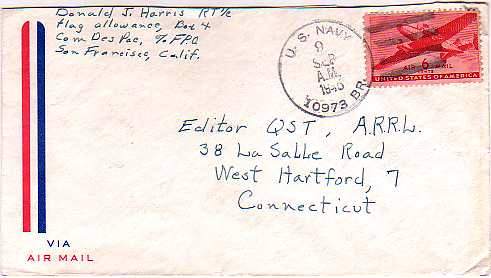 Donald J. Harris RT1/c
flag allowance, Box 4
Com Des Pac, % FPO
San Francisco, Calif.
U. S. NAVY
9
SEP
A.M.
10973 BR.
AIR MAIL
6
UNITED STATES OF AMERICA
Editor QST, A.R.R.L.
38 La Salle Road
West Hartford, 7
Connecticut
VIA
AIR MAIL